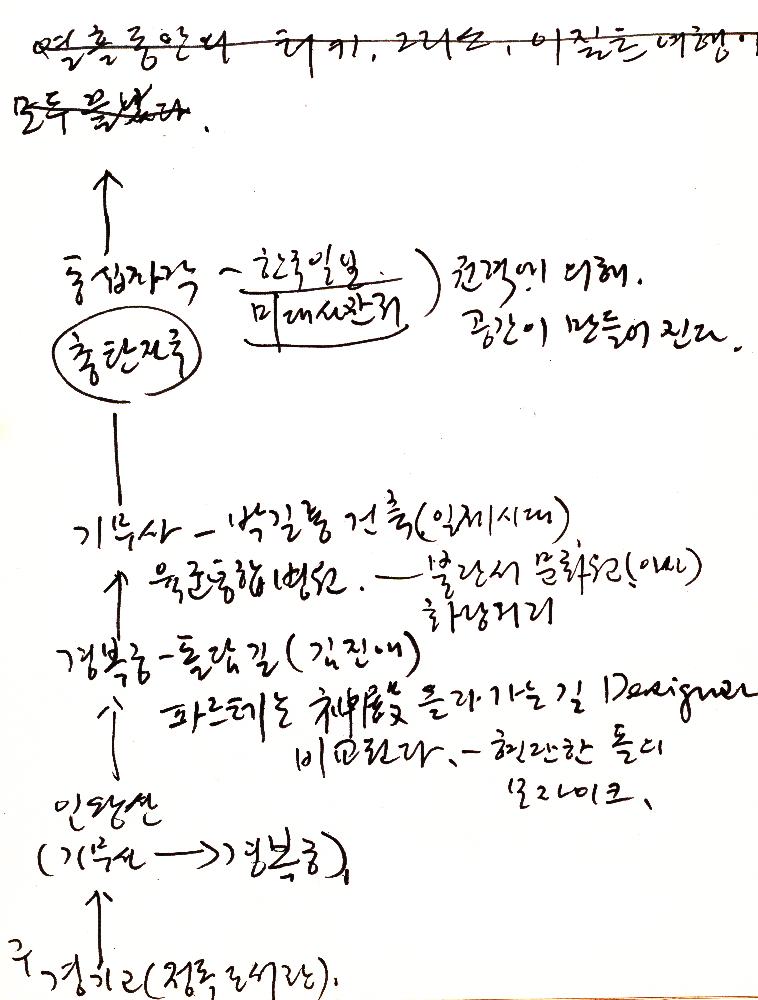 열흘동안의 터키, 그리스, 이집트 여행이
모두
동십자각 - 한국일보 권력에 의해.
미대사관저 공간이 만들어 진다.
중단지록
기무사 - 박길룡 건축(일제시대)
육군통합병원. - 불란서 문화원(
화랑거리
경복궁 - 돌담길(김진애)
파르테논 神殿 올라가는길 Designer
비교된다. - 현란한 돌의
모자이크.
인왕산
(기무사 → 경복궁)
구 경기고(정독도서관).